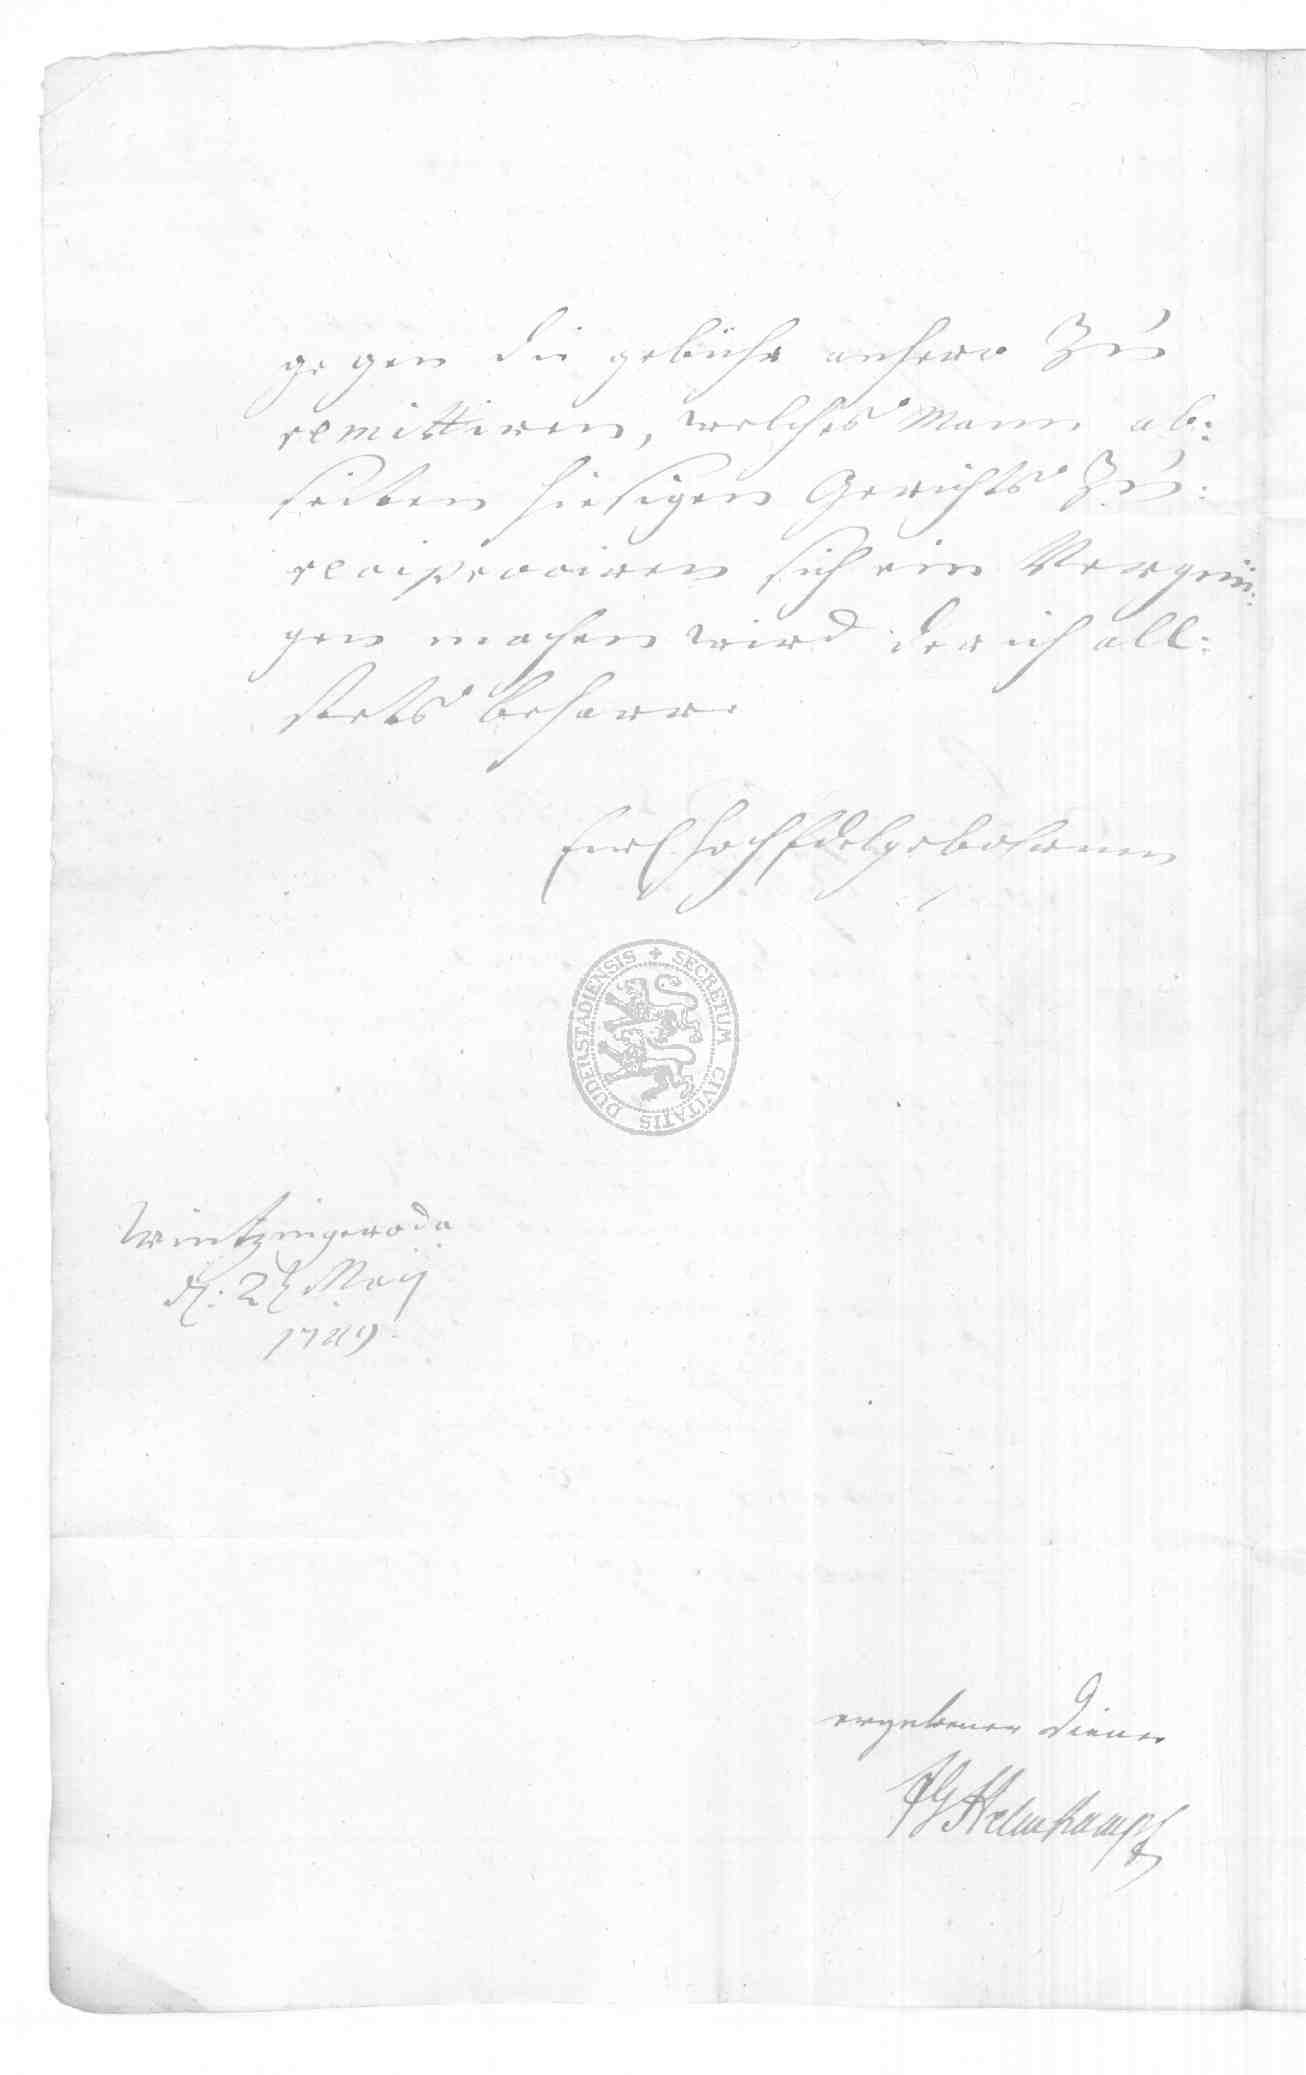 gegen die gebühr anhero zu
remittiren, welches Mann ab:
seiten hiesigen Gerichts zu:
reciprociren sich ein Vergnü:
gen machen wird der ich all:
stets beharre
Hoch Edelgebohrnen
SECRETUM CIVITATIS DUDERSTADIENSIS
Wintzingeroda
Maij
1789
ergebener Diener
Helmkampf